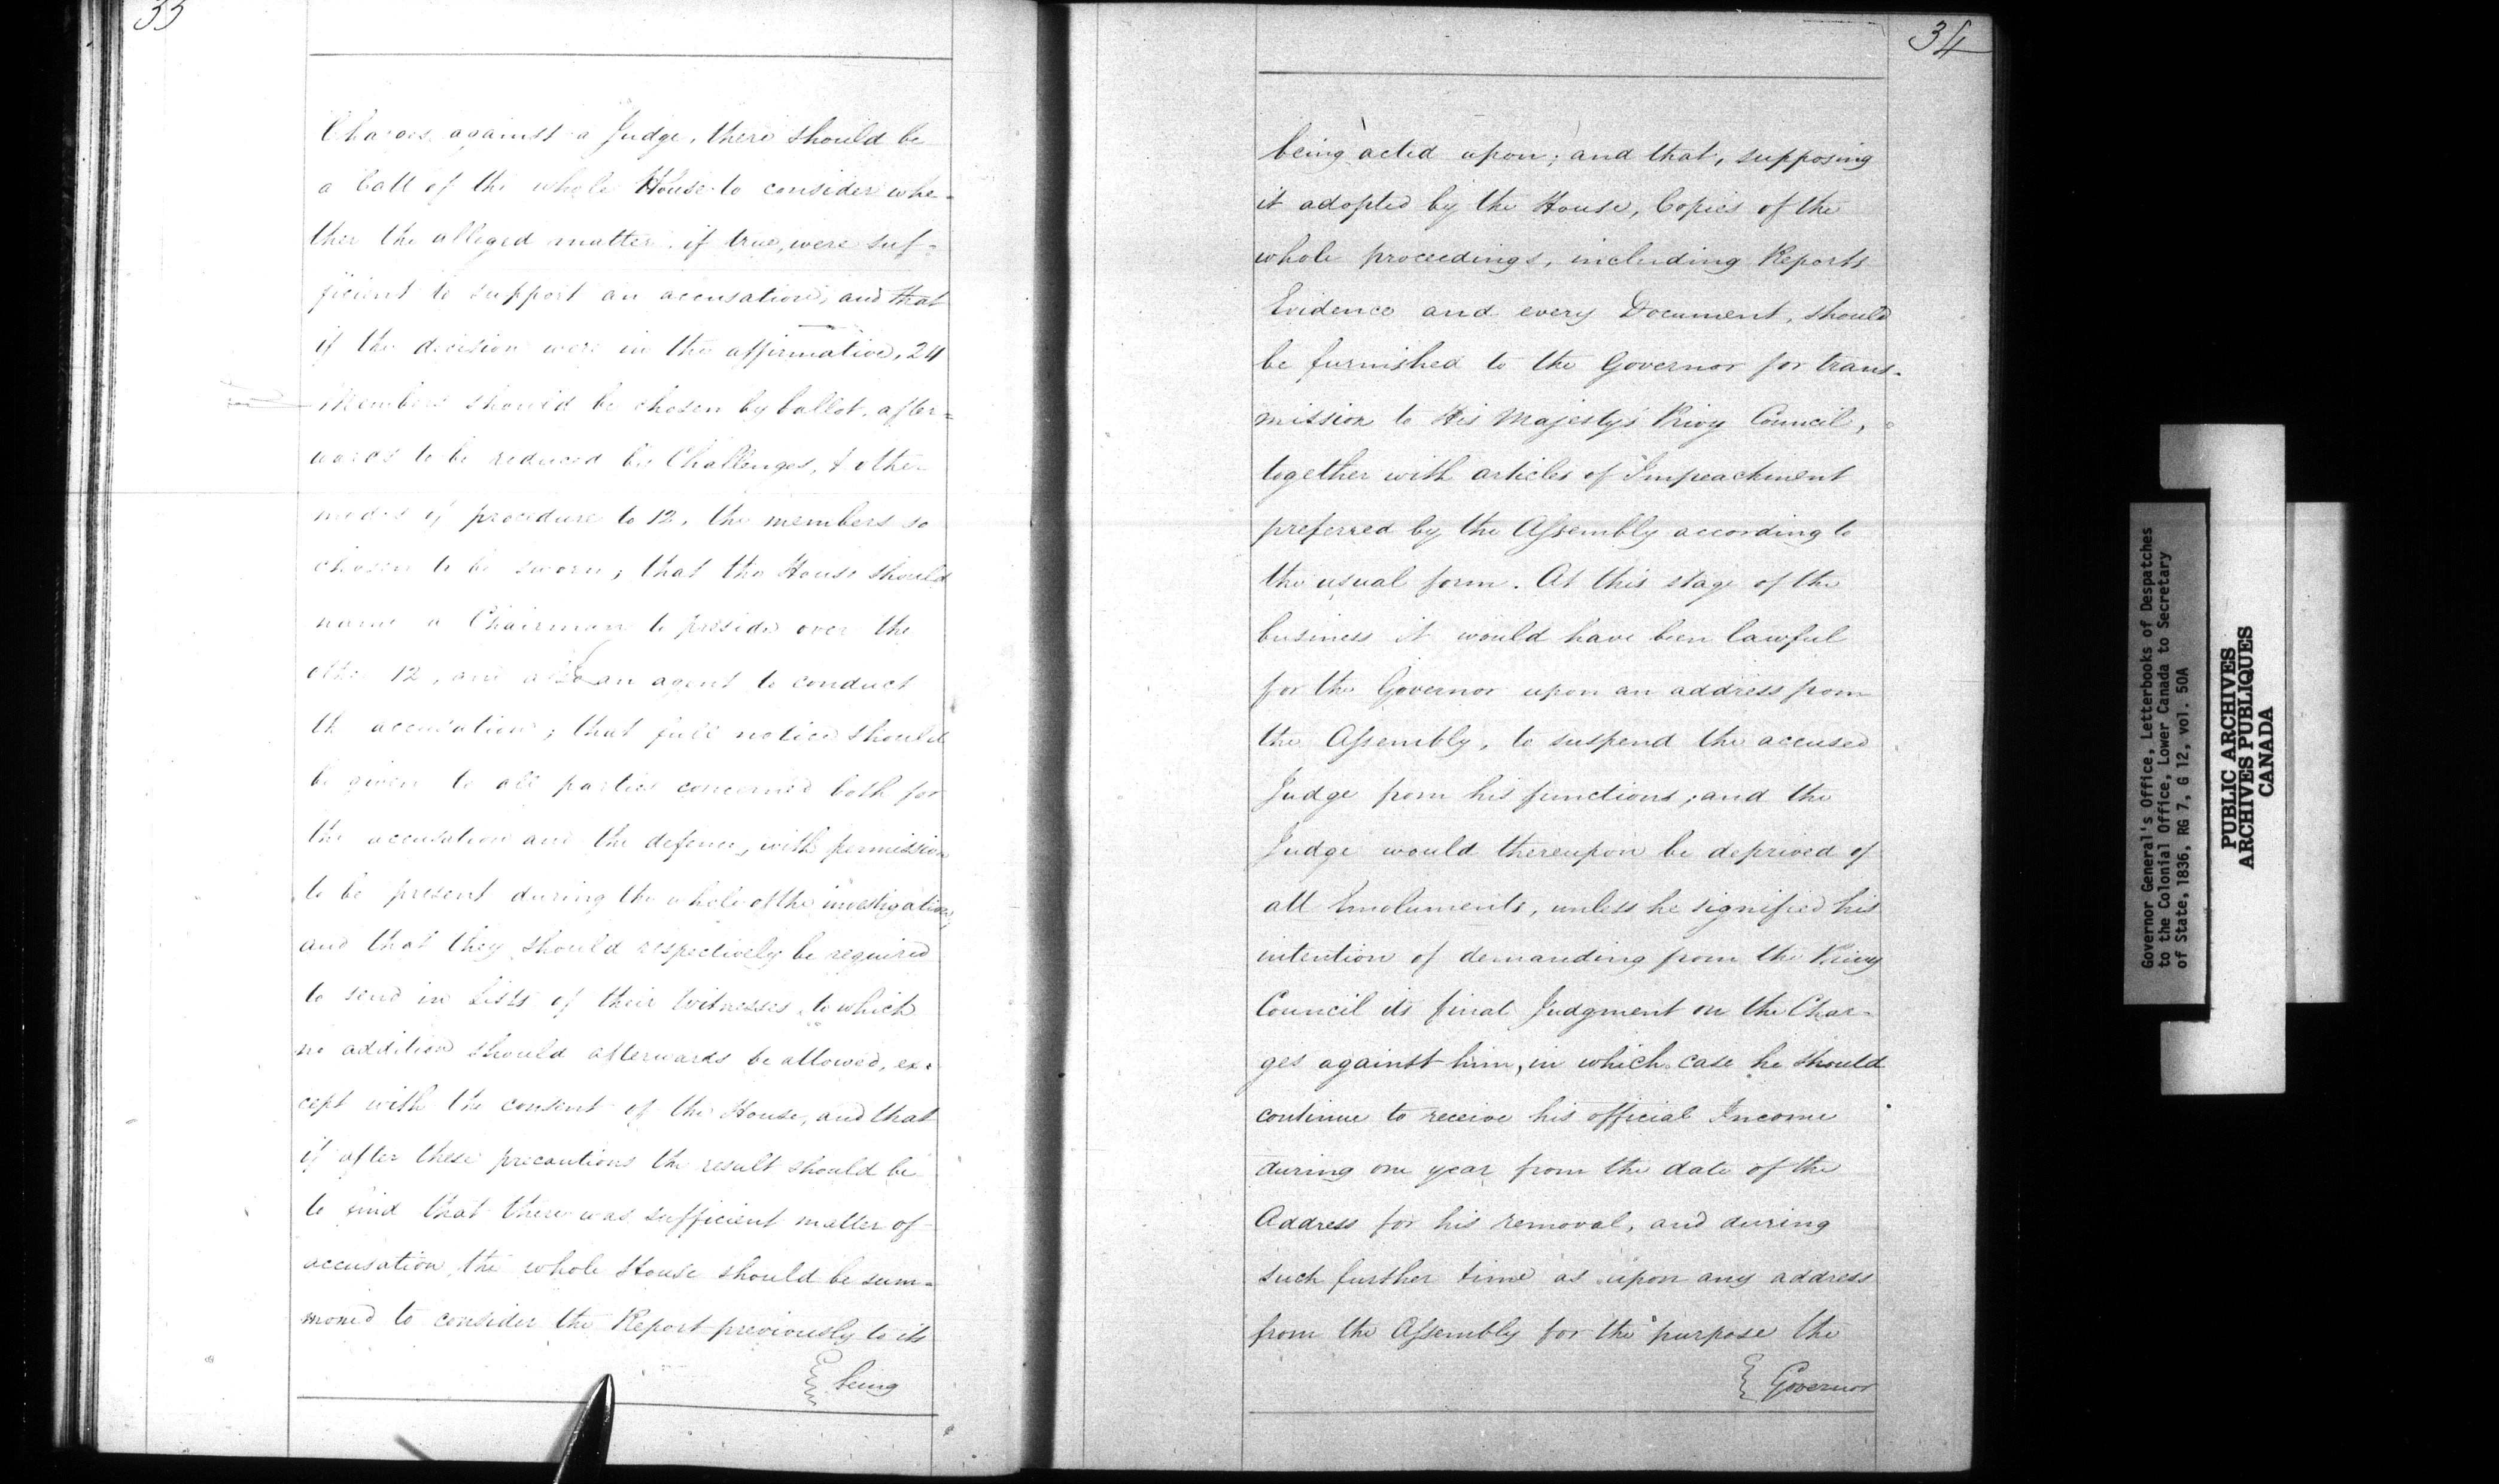 33
Charges against a Judge, there should be
a Call of the whole House to consider whe-
ther the alleged matter, if true, were suf-
ficient to support an accusation, and that
if the decision were in the affirmative, 24
Members should be chosen by ballot, after-
wards to be reduced by Challenges, & other
modes of procedure to 12, the members so
chosen to be sworn; that the House should
name a Chairman to preside over the
other 12, and also an agent to conduct
the accusation; that full notice should
be given to all parties concerned both for
the accusation and the defence, with permission
to be present during the whole of the investigation,
and that they should respectively be required
to send in Lists of their Witnesses, to which
no addition should afterwards be allowed, ex-
cept with the consent of the House, and that
if after these precautions the result should be
to find that there was sufficient matter of
accusation, the whole House should be sum-
moned to consider the Report previously to its
being
34
being acted upon; and that, supposing
it adopted by the House, Copies of the
whole proceedings, including Reports
Evidence and every Document, should
be furnished to the Governor for trans-
mission to His Majesty's Privy Council,
together with articles of Impeachment
preferred by the Assembly according to
the usual form. At this stage of the
business it would have been lawful
for the Governor upon an address from
the Assembly, to suspend the accused
Judge from his functions; and the
Judge would thereupon be deprived of
all Emoluments, unless he signified his
intention of demanding from the Privy
Council its final Judgment on the Char-
ges against him, in which case he should
continue to receive his official Income
during one year from the date of the
Address for his removal, and during
such further time as upon any address
from the Assembly for the purpose the
Governor
Governor General's Office, Letterbooks of Despatches
to the Colonial Office, Lower Canada to Secretary
of State, 1836, RG 7, G 12, vol. 50A
PUBLIC ARCHIVES
ARCHIVES PUBLIQUES
CANADA